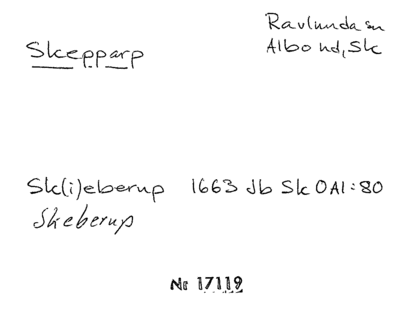 Skepparp
Ravlunda sn
Albo hd, Sk
Sk(i)eberup 1663 Jb Sk OAl:80
Skeberup
Nr 17119